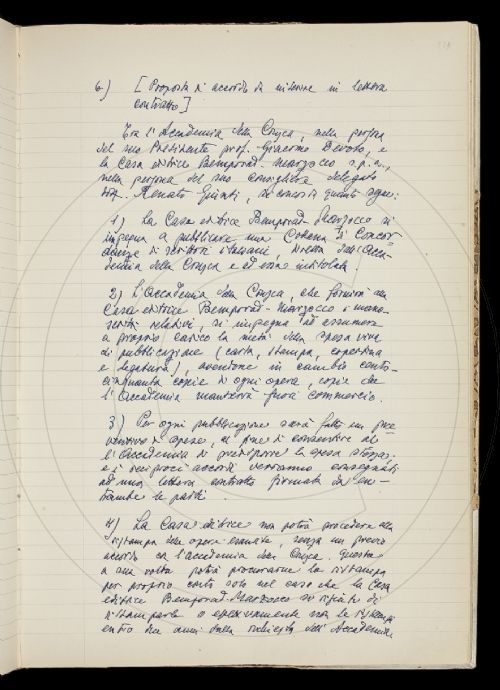 6) [Proposta di accordo da inserire in lettera
contratto]
Tra l'Accademia della Crusca, nella persona
del suo Presidente prof. Giacomo Devoto, e
la Casa editrice Bemporad-Marzocco s.p.a.,
nella persona del suo consigliere delegato
Renato Giunti, si conviene quanto segue:
1) La Casa editrice Bemporad Marzocco si
impegna a pubblicare una Collana di Concor-
danze di scrittori italiani, diretta dall'Acca-
demia della Crusca e ad essa intitolata.
2) L'Accademia della Crusca, che fornirà alla
Casa editrice Bemporad-Marzocco i mano-
scritti relativi, si impegna ad assumere
a proprio carico la metà della spesa viva
di pubblicazione (carta, stampa, copertina
e legatura), avendone in cambio cento-
cinquanta copie di ogni opera, copie che
l'Accademia manterrà fuori commercio.
3) Per ogni pubblicazione sarà fatto un pre-
ventivo di spese, al fine di consentire al-
l'Accademia di predisporre la spesa stessa;
e i reciproci accordi verranno consegnati
ad una lettera contratto firmata da en-
trambe le parti.
4) La Casa editrice non potrà procedere alla
ristampa delle opere esaurite, senza un previo
accordo con l'Accademia della Crusca. Questa
a sua volta potrà procurarne la ristampa
per proprio conto solo nel caso che la Casa
editrice Bemporad-Marzocco si rifiuti di
ristamparle o effettivamente non le ristampi
entro due anni dalla richiesta dell'Accademia.